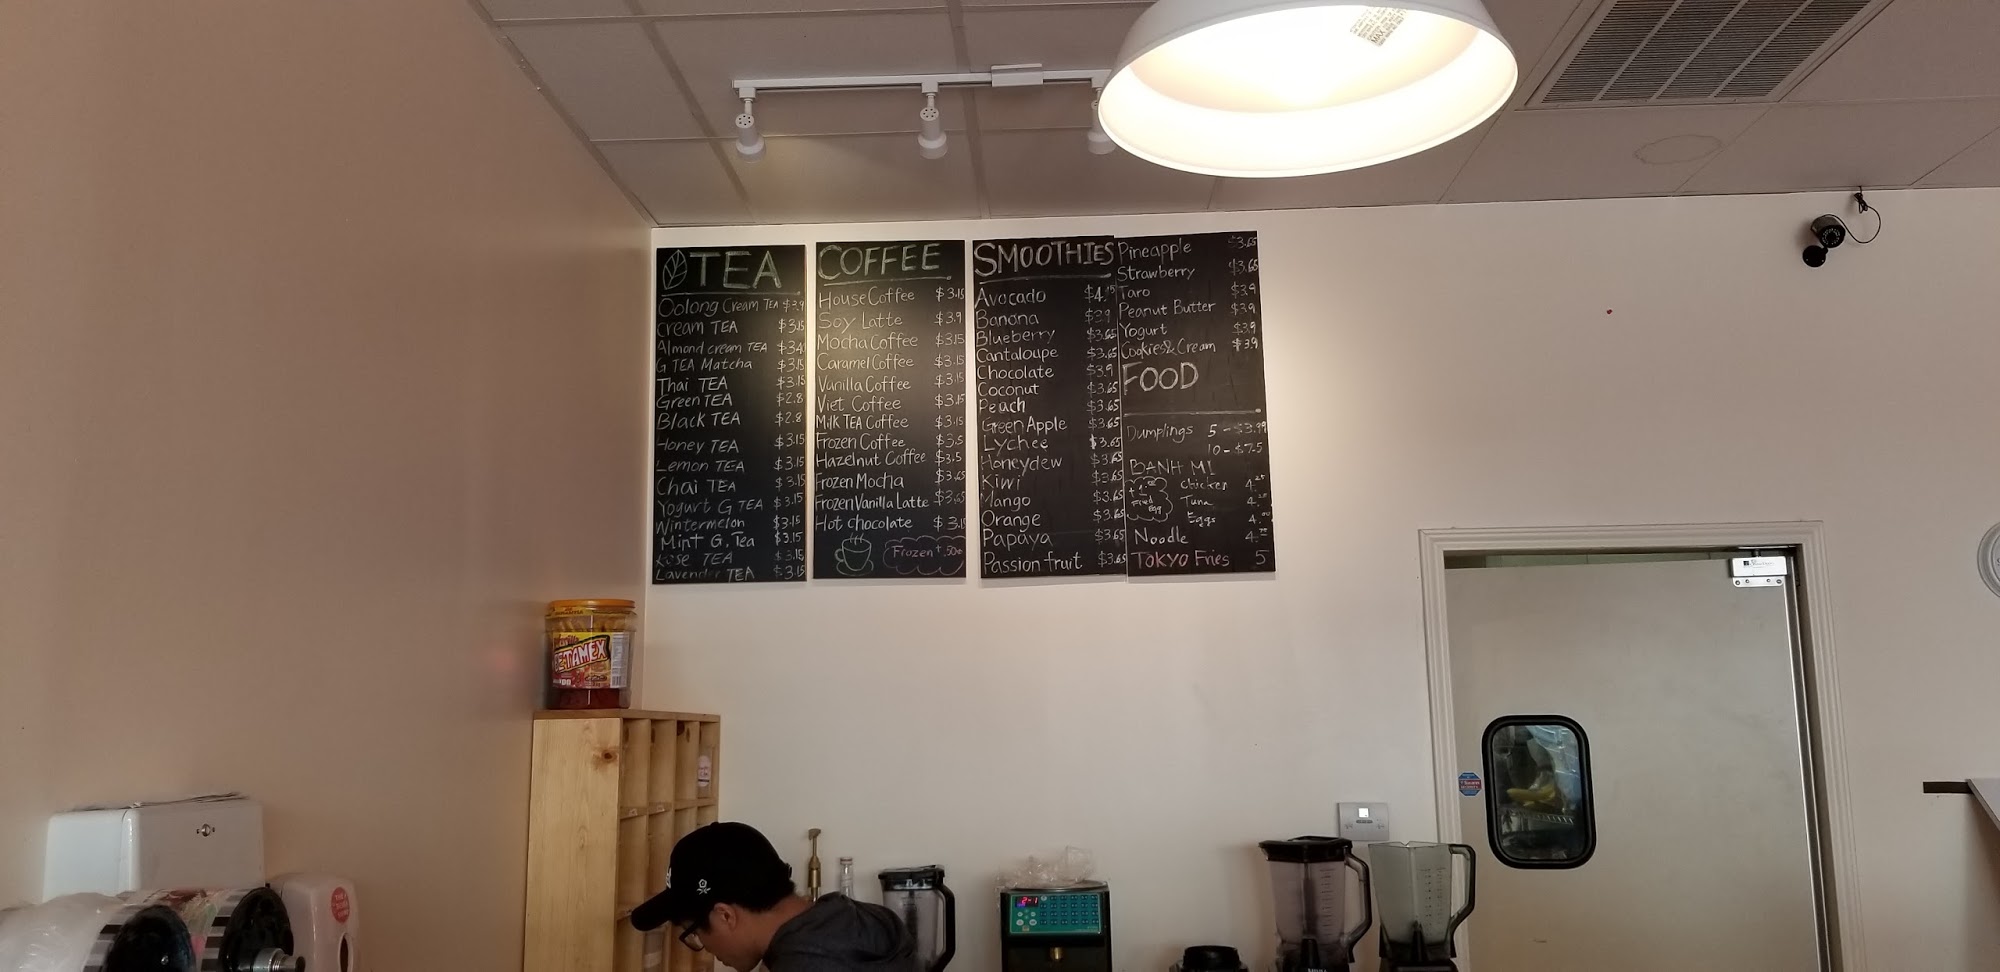 TEA
Oolong Cream TEA $3.9
Cream TEA $3.15
Almond cream TEA $3.4
G TEA Matcha $3.15
Thai TEA $3.15
Green TEA $2.8
Black TEA $2.8
Honey TEA $3.15
Lemon TEA $3.15
Chai TEA $3.15
Yogurt G TEA $3.15
Wintermelon $3.15
Mint G. Tea $3.15
Rose TEA $3.15
Lavender TEA $3.15
COFFEE
House Coffee $3.15
Soy Latte $3.9
Mocha Coffee $3.15
Caramel Coffee $3.15
Vanilla Coffee $3.15
Viet Coffee $3.15
Milk TEA Coffee $3.15
Frozen Coffee $3.5
Hazelnut Coffee $3.5
Frozen Mocha $3.65
Frozen Vanilla Latte $3.65
Hot chocolate $3.15
Frozen + .50¢
SMOOTHIES
Avocado $4.15
Banana $3.9
Blueberry $3.65
Cantaloupe $3.65
Chocolate $3.9
Coconut $3.65
Peach $3.65
Green Apple $3.65
Lychee $3.65
Honeydew $3.65
Kiwi $3.65
Mango $3.65
Orange $3.65
Papaya $3.65
Passion fruit $3.65
Pineapple $3.65
Strawberry $3.65
Taro $3.9
Peanut Butter $3.9
Yogurt $3.9
Cookies & Cream $3.9
FOOD
Dumplings 5 - $3.99
10 - $7.5
BANH MI
Chicken 4.25
Tuna 4.25
Eggs 4.00
Fried
egg
Noodle 4.75
TOKYO Fries 5
MAX